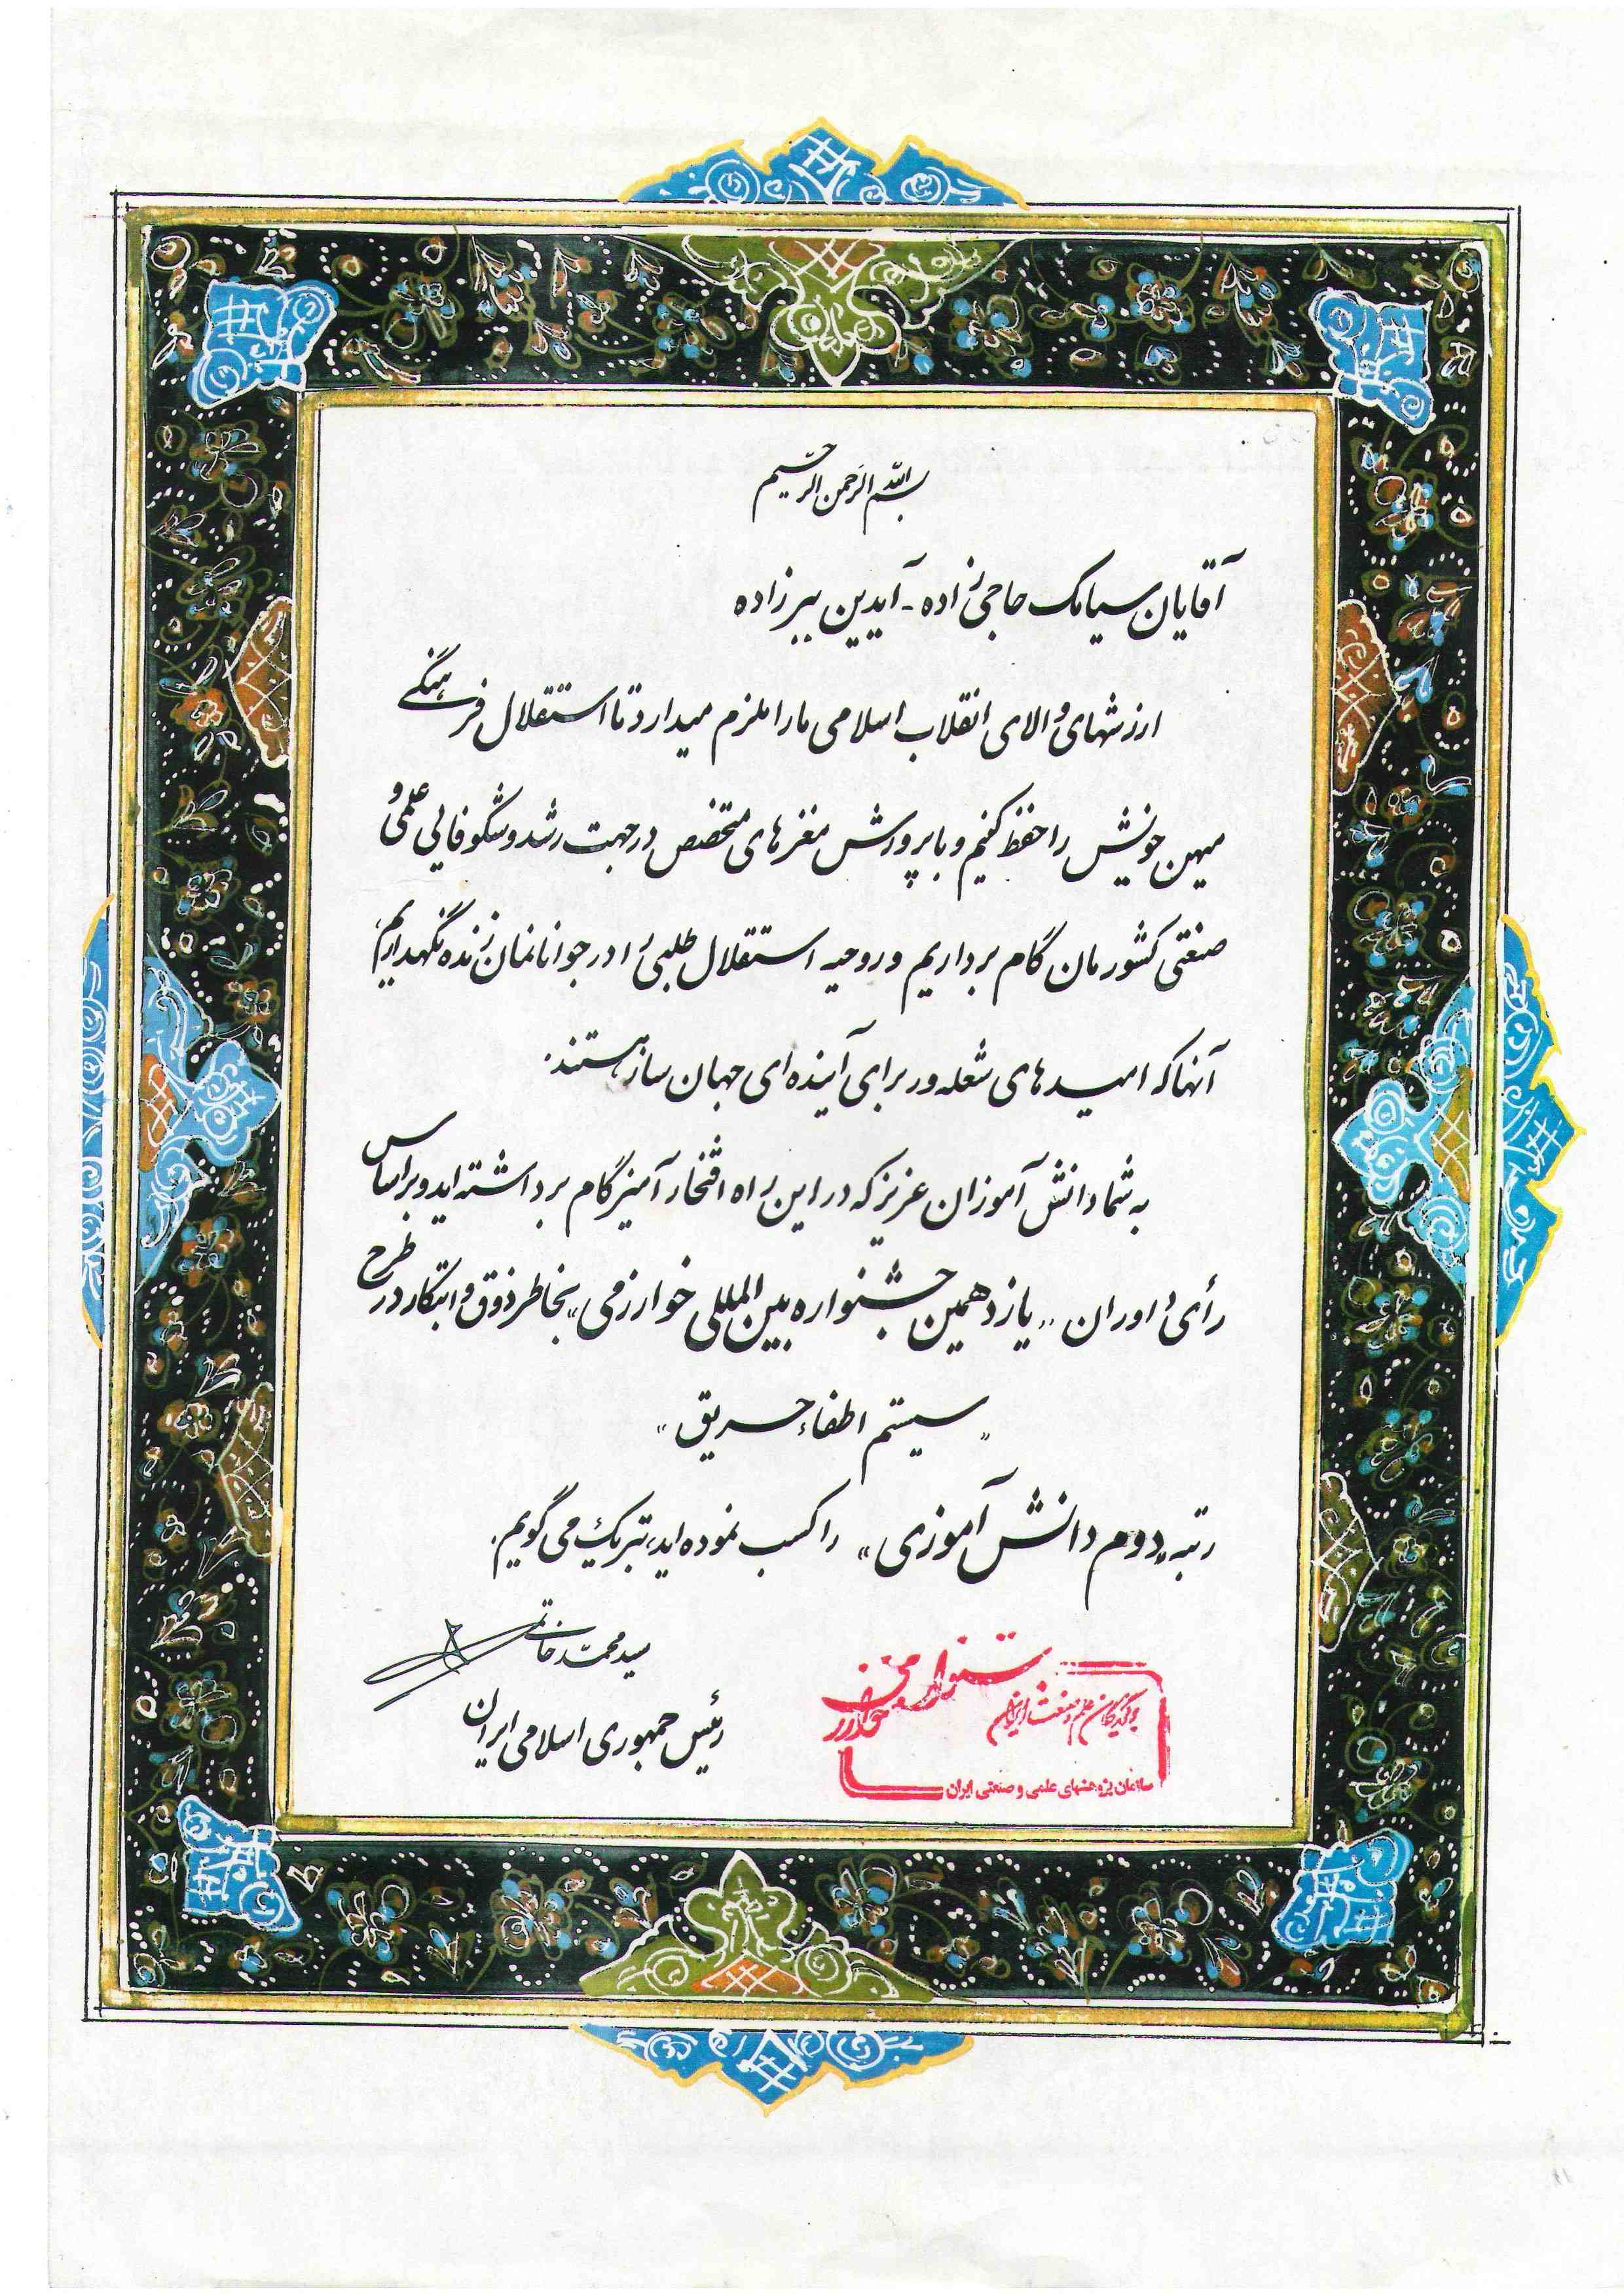 بسم الله الرحمن الرحیم
آقایان سیامک حاجی زاده - آیدین ببرزاده
ارزشهای والای انقلاب اسلامی ما را ملزم میدارد تا استقلال فرهنگی
میهن خویش را حفظ کنیم و با پرورش مغزهای متخصص در جهت رشد و شکوفائی علمی و
صنعتی کشورمان گام برداریم و روحیه استقلال طلبی را در جوانانمان زنده نگهداریم،
آنها که امیدهای شعله ور برای آینده ای جهان ساز هستند.
به شما دانش آموزان عزیز که در این راه افتخار آمیز گام برداشته اید و براساس
رأی داوران «یازدهمین جشنواره بین المللی خوارزمی» بخاطر ذوق و ابتکار در طرح
«سیستم اطفاء حریق»
رتبه «دوم دانش آموزی» را کسب نموده اید، تبریک می گویم.
سید محمد خاتمی
رئیس جمهوری اسلامی ایران
جشنواره خوارزمی
برگزیدگان علم و صنعت ایران
سازمان پژوهشهای علمی و صنعتی ایران